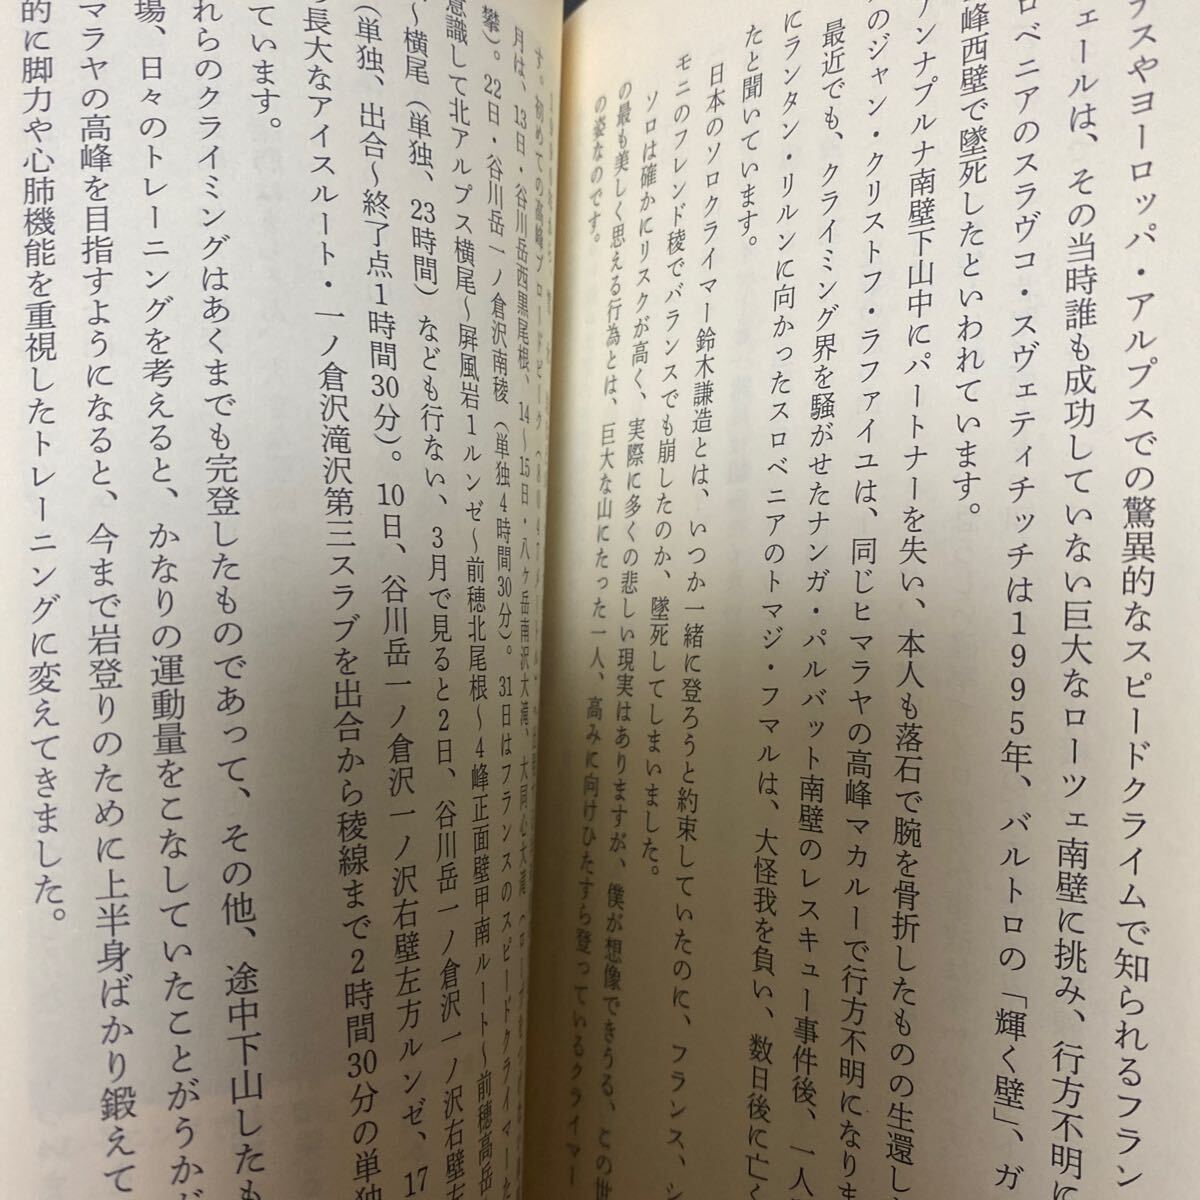 スやヨーロッパ・アルプスでの驚異的なスピードクライムで知られるフラン
ェールは、その当時誰も成功していない巨大なローツェ南壁に挑み、行方不明に
ロベニアのスラヴコ・スヴェティチッチは1995年、バルトロの「輝く壁」、ガ
峰西壁で墜死したといわれています。
アンナプルナ南壁下山中にパートナーを失い、本人も落石で腕を骨折したものの生還し
のジャン・クリストフ・ラファイユは、同じヒマラヤの高峰マカルーで行方不明になりま
最近でも、クライミング界を騒がせたナンガ・パルバット南壁のレスキュー事件後、一人
にランタン・リルンに向かったスロベニアのトマジ・フマルは、大怪我を負い、数日後に亡く
たと聞いています。
日本のソロクライマー鈴木謙造とは、いつか一緒に登ろうと約束していたのに、フランス、シ
モニのフレンド稜でバランスでも崩したのか、墜死してしまいました。
ソロは確かにリスクが高く、実際に多くの悲しい現実はありますが、僕が想像できうる、この世
の最も美しく思える行為とは、巨大な山にたった一人、高みに向けひたすら登っているクライマー
の姿なのです。
す。初めての高峰ブロードピーク(8047メートル)
月は、13日・谷川岳西黒尾根、14〜15日・八ヶ岳南沢大滝、大同心大滝
攀)。22日・谷川岳一ノ倉沢南稜(単独4時間30分)。31日はフランスのスピードクライマーた
意識して北アルプス横尾〜屏風岩1ルンゼ〜前穂北尾根〜4峰正面壁甲南ルート〜前穂高岳
〜横尾(単独、23時間)なども行ない、3月で見ると2日、谷川岳一ノ倉沢一ノ沢右壁左
(単独、出合〜終了点1時間30分)。10日、谷川岳一ノ倉沢一ノ沢右壁左方ルンゼ、17
長大なアイスルート・一ノ倉沢滝沢第三スラブを出合から稜線まで2時間30分の単独
ています。
れらのクライミングはあくまでも完登したものであって、その他、途中下山したも
場、日々のトレーニングを考えると、かなりの運動量をこなしていたことがうかが
マラヤの高峰を目指すようになると、今まで岩登りのために上半身ばかり鍛えて
的に脚力や心肺機能を重視したトレーニングに変えてきました。